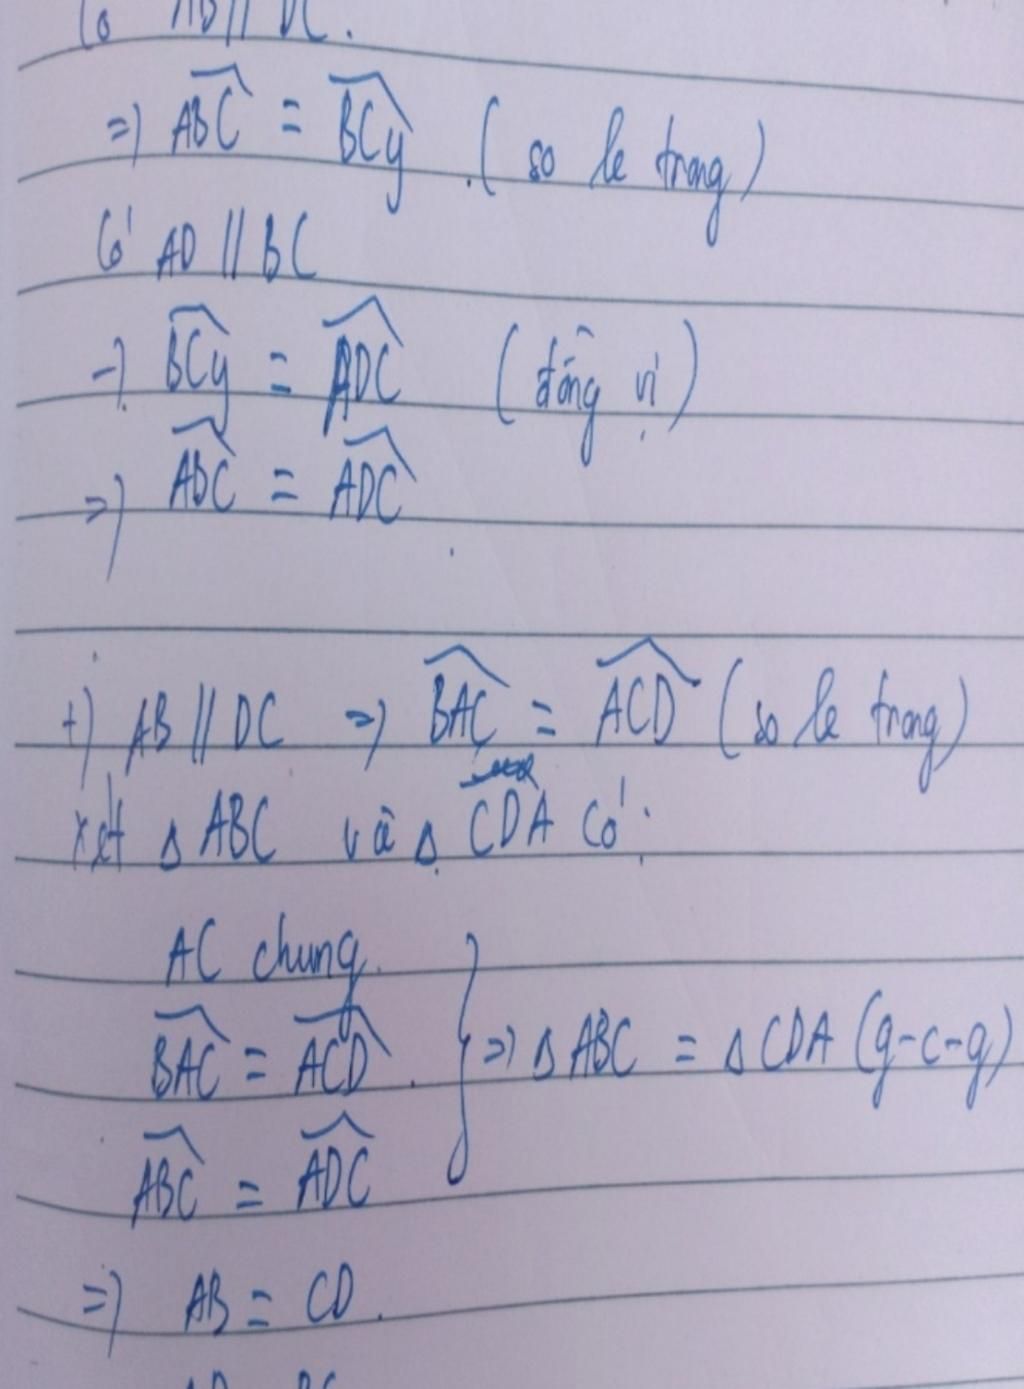 Có AB // DC.
=> ABC^ = BCy^ . (so le trong)
Có AD // BC
-> BCy^ = ADC^ (đồng vị)
=> ABC^ = ADC^
+) AB // DC => BAC^ = ACD^ (so le trong)
xét Δ ABC và Δ CDA có:
AC chung.
BAC^ = ACD^ . } => Δ ABC = Δ CDA (g-c-g)
ABC^ = ADC^
=> AB = CD.